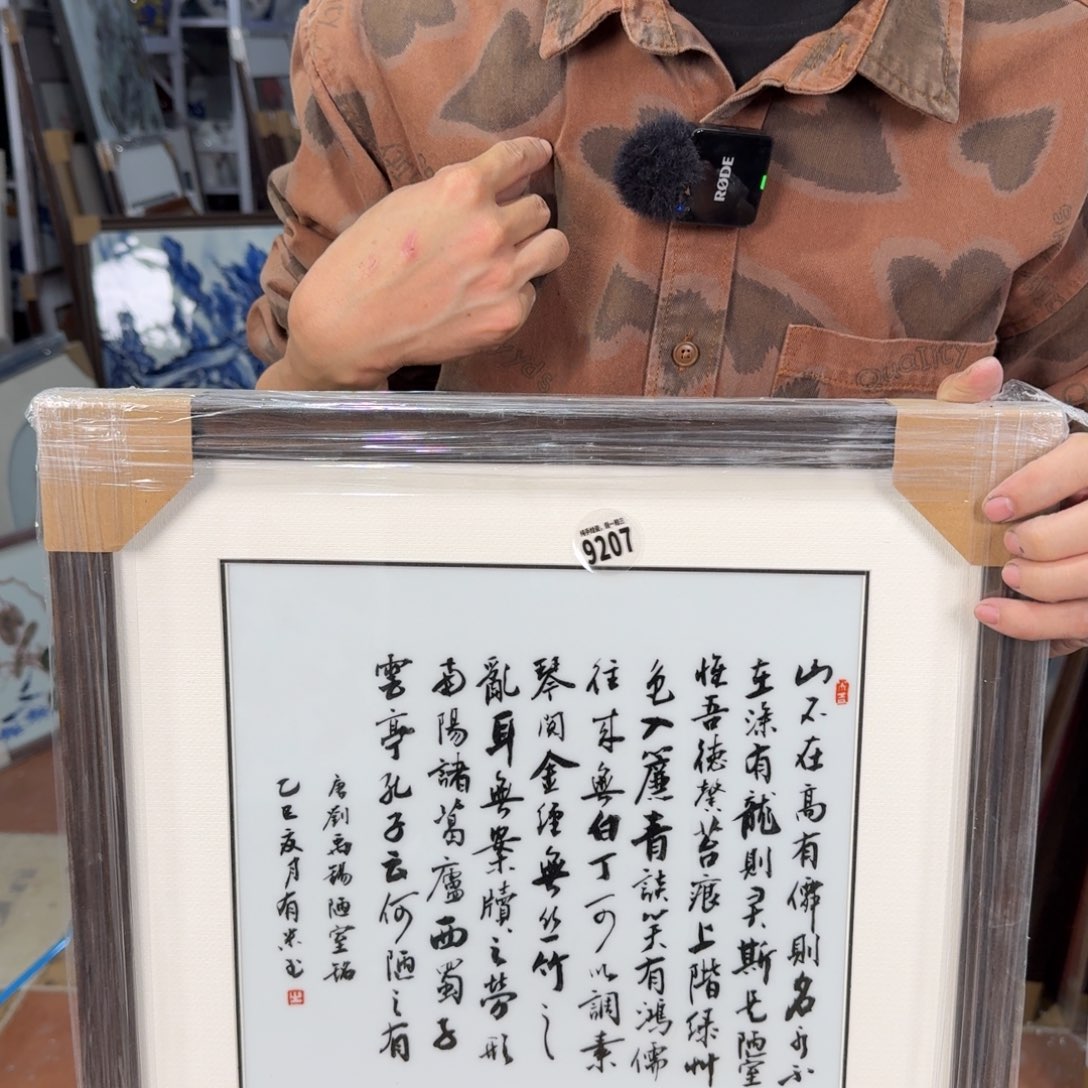 RØDE
Quality
9207
山不在高有僊則名水不
在深有龍則靈斯是陋室
惟吾德馨苔痕上階綠艸
色入簾青談笑有鴻儒
往來無白丁可以調素
琴閱金經無絲竹之
亂耳無案牘之勞形
南陽諸葛廬西蜀子
雲亭孔子云何陋之有
唐劉禹錫陋室銘
乙巳夏月有米書